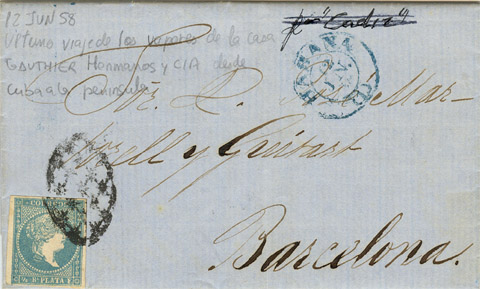 12 JUN 58
Ultimo viaje de los vapores de la casa
GAUTHIER Hermanos y CIA desde
cuba a la peninsula
pr "Cadiz"
HABANA
Mar-
torell y Guitart
Barcelona.
CORREOS
½ Rl PLATA F